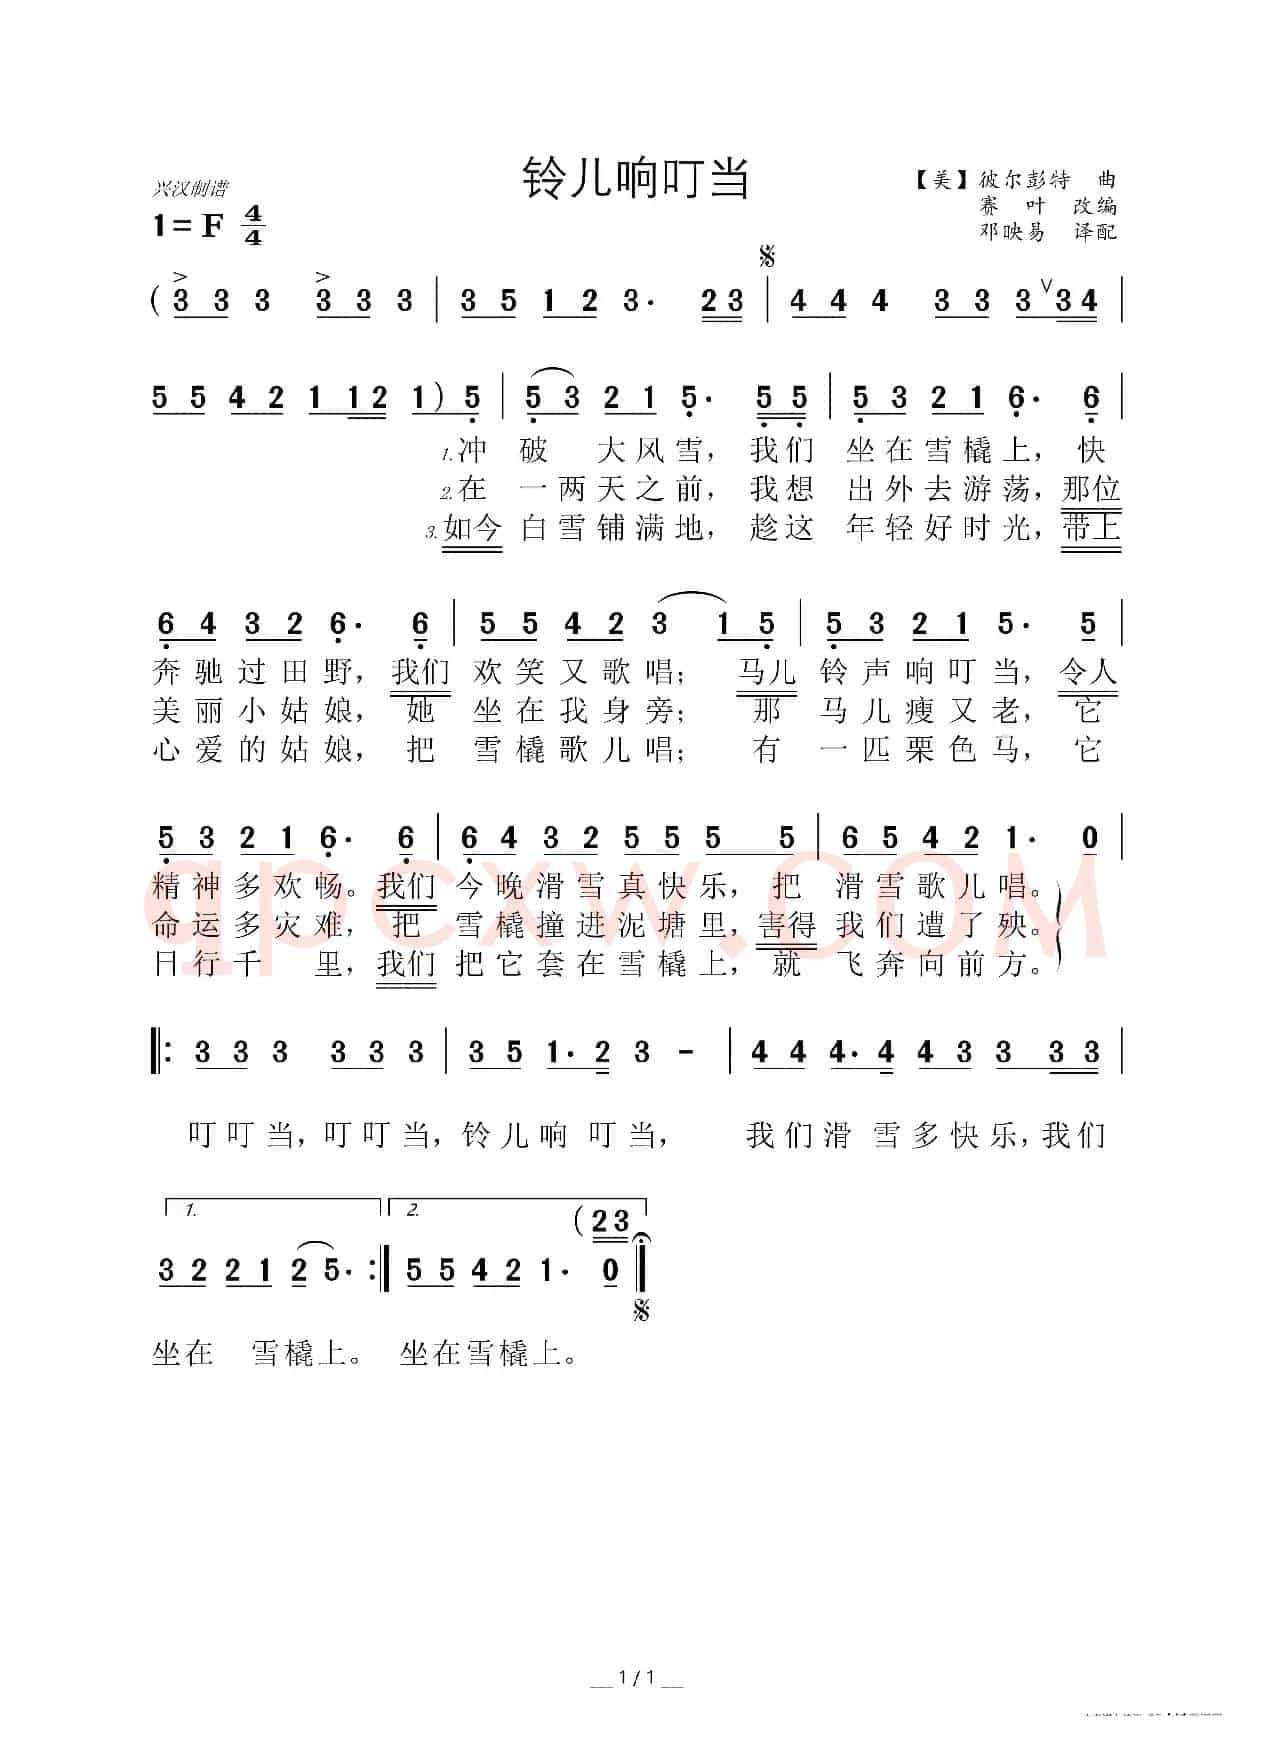 铃儿响叮当
兴汉制谱
【美】彼尔彭特 曲
赛 叶 改编
邓映易 译配
1=F 4/4
(3 3 3 3 3 3 | 3 5 1 2 3· 2 3 | 4 4 4 3 3 3 ∨ 3 4 |
5 5 4 2 1 1 2 1) 5 | 5 3 2 1 5· 5 5 | 5 3 2 1 6· 6 |
1.冲 破 大风雪，我们 坐在雪橇上，快
2.在 一两天之前，我想 出外去游荡，那位
3.如今 白雪铺满地，趁这 年轻好时光，带上
6 4 3 2 6· 6 | 5 5 4 2 3 1 5 | 5 3 2 1 5· 5 |
奔驰过田野，我们 欢笑又歌唱； 马儿 铃声响叮当，令人
美丽小姑娘， 她 坐在我身旁； 那 马儿瘦又老，它
心爱的姑娘， 把 雪橇歌儿唱； 有 一匹栗色马，它
5 3 2 1 6· 6 | 6 4 3 2 5 5 5 5 | 6 5 4 2 1· 0 |
精神多欢畅。我们 今晚滑雪真快乐，把 滑雪歌儿唱。
命运多灾难，把 雪橇撞进泥塘里，害得 我们遭了殃。
日行千 里，我们 把它套在雪橇上，就 飞奔向前方。
qpcxw.com
3 3 3 3 3 3 | 3 5 1· 2 3 - | 4 4 4· 4 4 3 3 3 3 |
叮叮当，叮叮当，铃儿响 叮当， 我们滑 雪多快乐，我们
1. 2.
3 2 2 1 2 5· :| 5 5 4 2 1· 0 (2 3
坐在 雪橇上。 坐在雪橇上。
1 / 1